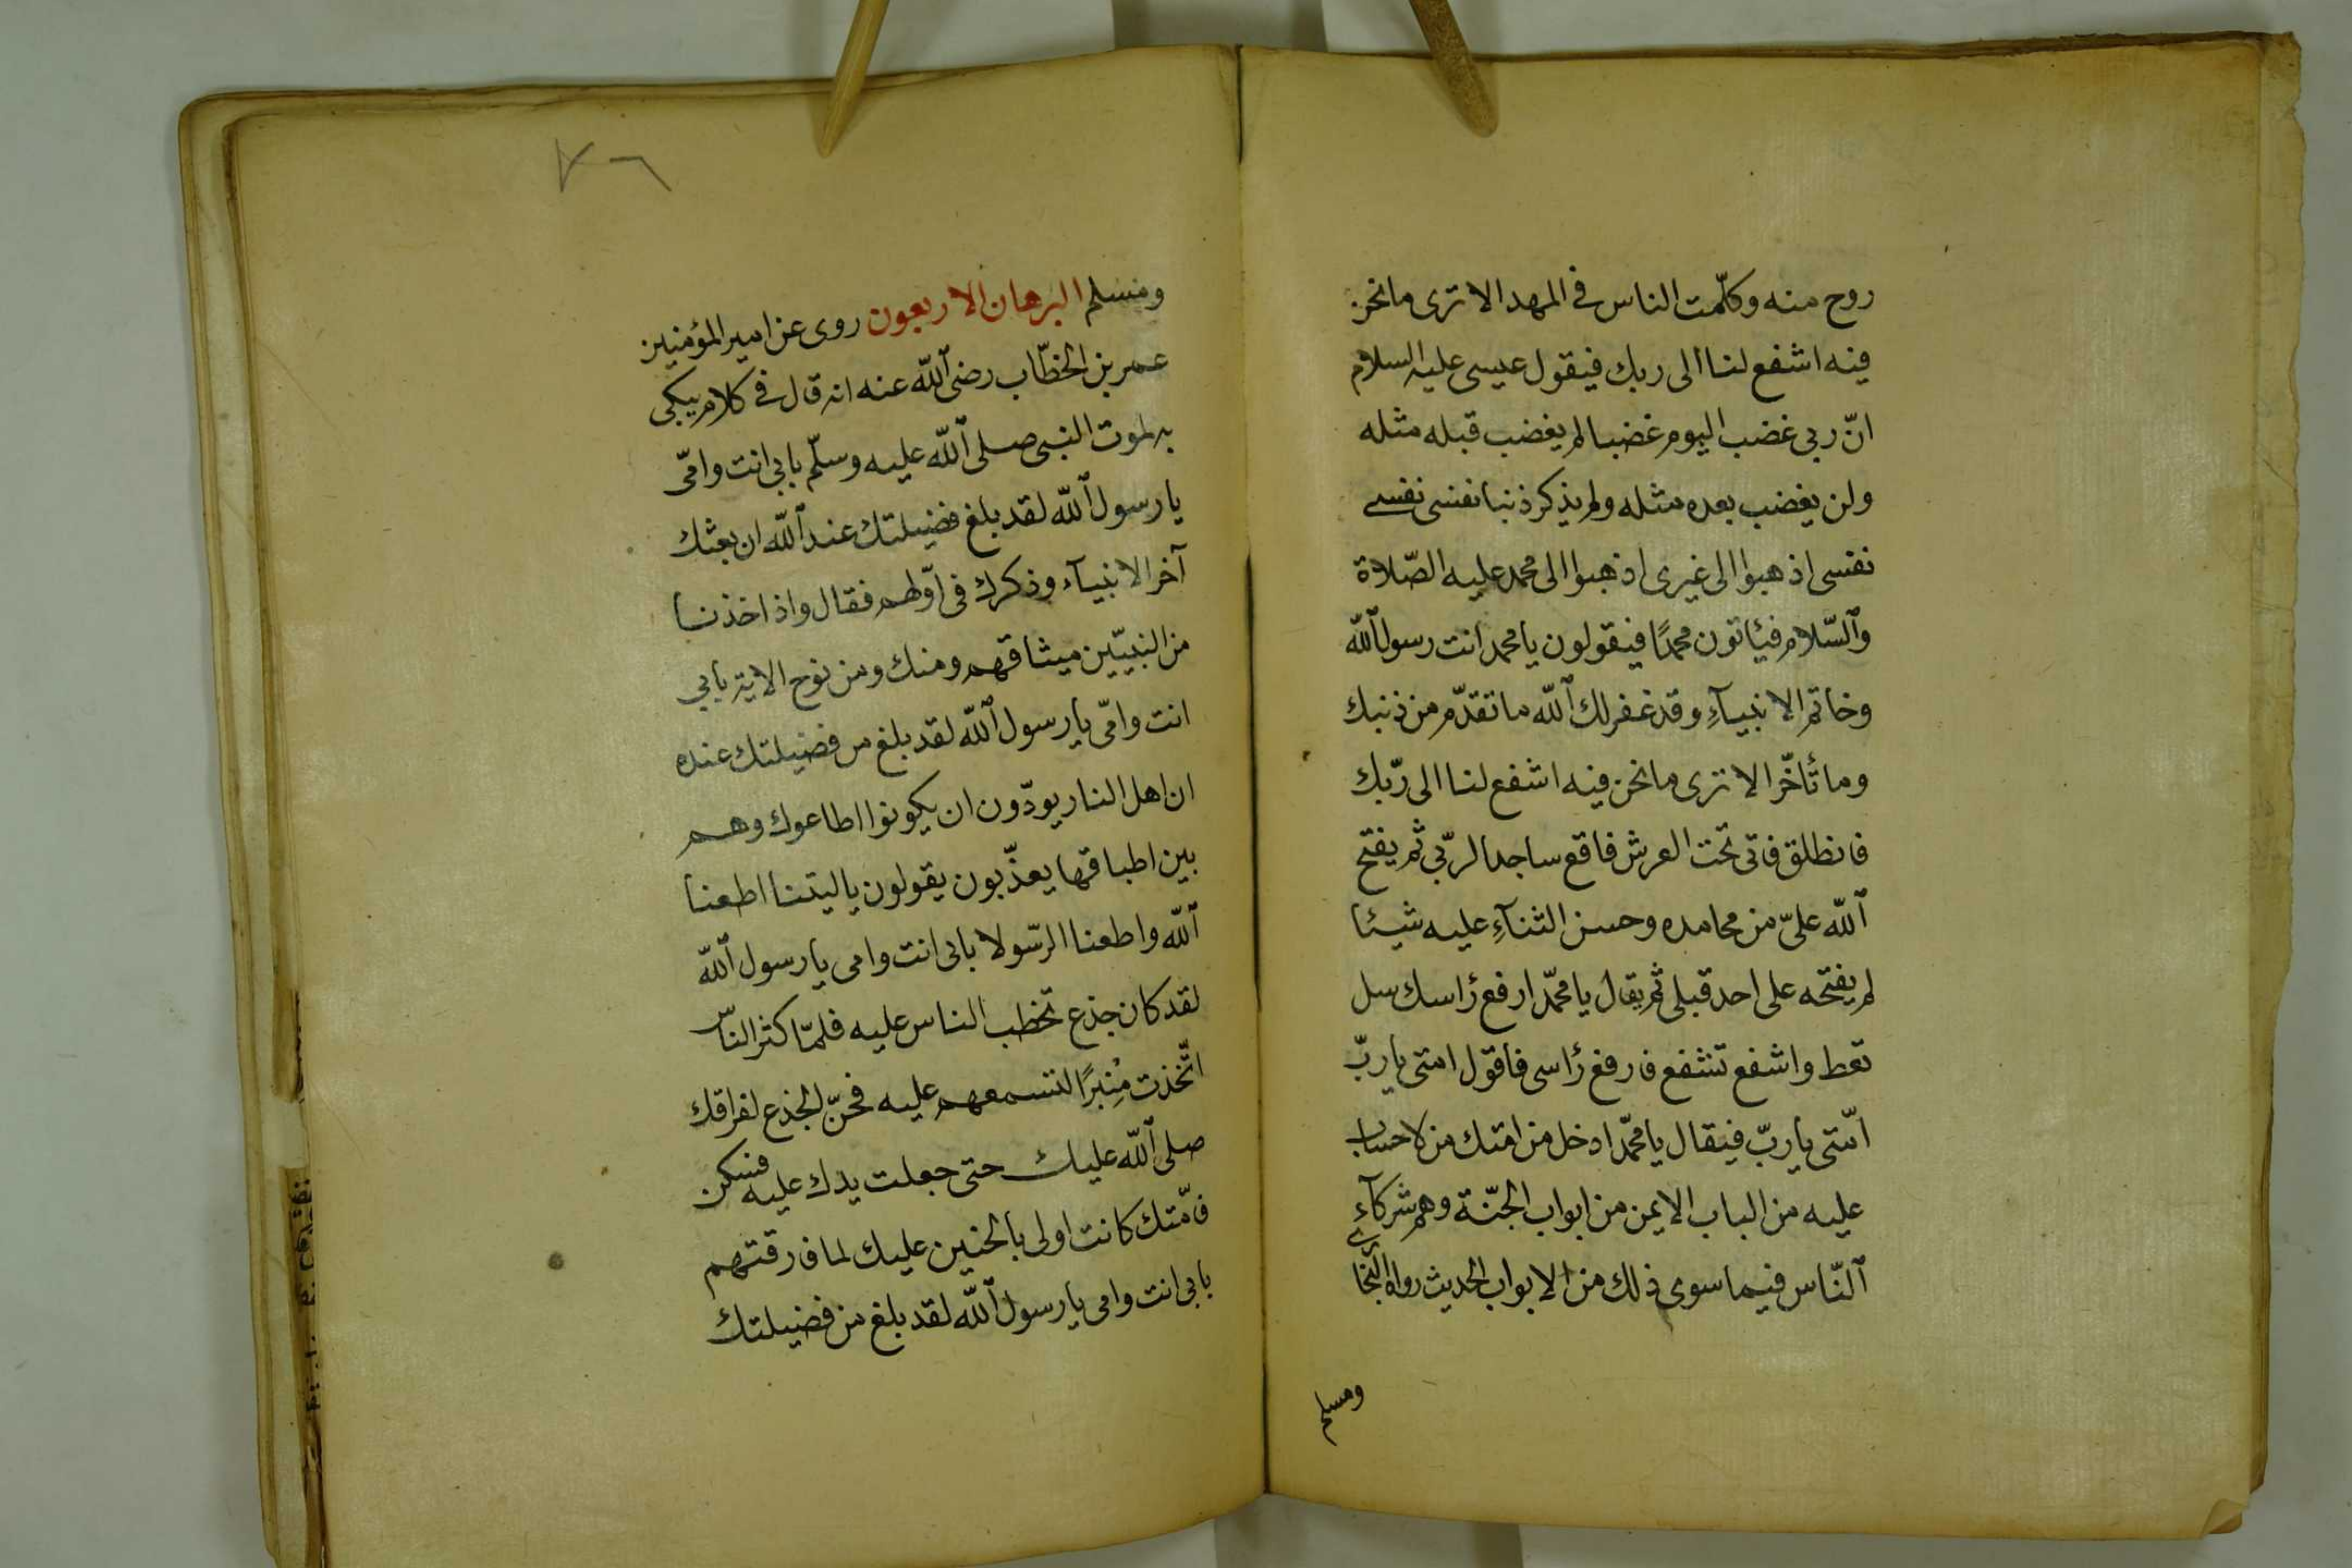 روح منه وكلّمت الناس فى المهد الا ترى ما نحن
فيه اشفع لنا الى ربك فيقول عيسى عليه السلام
انّ ربى غضب اليوم غضبا لم يغضب قبله مثله
ولن يغضب بعده مثله ولم يذكر ذنبا نفسى نفسى
نفسى اذهبوا الى غيرى اذهبوا الى محمد عليه الصّلاة
والسّلام فيأتون محمدًا فيقولون يا محمد انت رسول الله
وخاتم الانبيآءِ وقد غفر لك الله ما تقدّم من ذنبك
وما تأخّر الا ترى ما نحن فيه اشفع لنا الى ربّك
فانطلق فاتى تحت العرش فاقع ساجدا لربّى ثم يفتح
الله علىّ من محامده وحسن الثنآءِ عليه شيئا
لم يفتحه على احد قبلى ثم يقال يا محمّد ارفع رأسك سل
تعط واشفع تشفع فارفع رأسى فاقول امتى يا ربّ
امّتى يا ربّ فيقال يا محمّد ادخل من امتك من لا حساب
عليه من الباب الايمن من ابواب الجنّة وهم شركآءِ
النّاس فيما سوى ذلك من الابواب الحديث رواه البخارى
ومسلم
٧٦
ومسلم البرهان الاربعون روى عن امير المؤمنين
عمر بن الخطّاب رضى الله عنه انه قال فى كلام يبكى
به لموت النبى صلى الله عليه وسلّم بابى انت وامّى
يا رسول الله لقد بلغ فضيلتك عند الله ان بعثك
آخر الانبيآء وذكرك فى اوّلهم فقال واذ اخذنا
من النبيّين ميثاقهم ومنك ومن نوح الاية بابى
انت وامّى يا رسول الله لقد بلغ من فضيلتك عنده
ان اهل النار يودّون ان يكونوا اطاعوك وهم
بين اطباقها يعذّبون يقولون يا ليتنا اطعنا
الله واطعنا الرّسولا بابى انت وامى يا رسول الله
لقد كان جذع تخطب الناس عليه فلمّا كثر النّاس
اتّخذت مِنبرًا لتسمعهم عليه فحنّ الجذع لفراقك
صلى الله عليك حتى جعلت يدك عليه فسكن
فامّتك كانت اولى بالحنين عليك لما فارقتهم
بابى انت وامى يا رسول الله لقد بلغ من فضيلتك